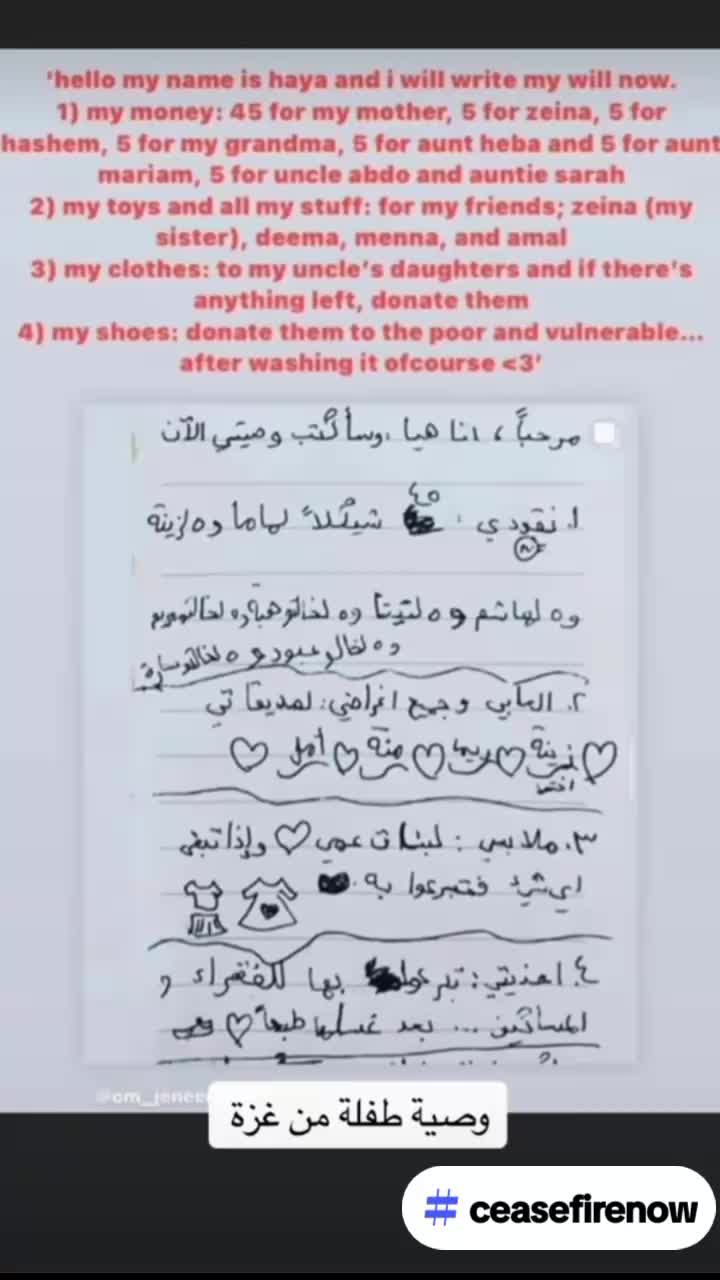 'hello my name is haya and i will write my will now.
1) my money: 45 for my mother, 5 for zeina, 5 for
hashem, 5 for my grandma, 5 for aunt heba and 5 for aunt
mariam, 5 for uncle abdo and auntie sarah
2) my toys and all my stuff: for my friends; zeina (my
sister), deema, menna, and amal
3) my clothes: to my uncle's daughters and if there's
anything left, donate them
4) my shoes: donate them to the poor and vulnerable...
after washing it ofcourse <3'
مرحباً، انا هيا، وسأكتب وصيتي الآن
٤٥
١. نقودي: شيكلاً لماما و٥ لزينة
و٥ لهاشم و٥ لتيتا و٥ لخالتو هبة و٥ لخالتو مريم
و٥ لخالو عبود و٥ لخالتو سارة
٢. العابي وجميع اغراضي: لصديقاتي
زينة ريما منة أمل
اختي
٣. ملابسي: لبنات عمي وإذا تبقى
اي شيء فتبرعوا به.
٤. احذيتي: تبرعوا بها للفقراء و
المساكين... بعد غسلها طبعاً
@om_jenee
وصية طفلة من غزة
# ceasefirenow